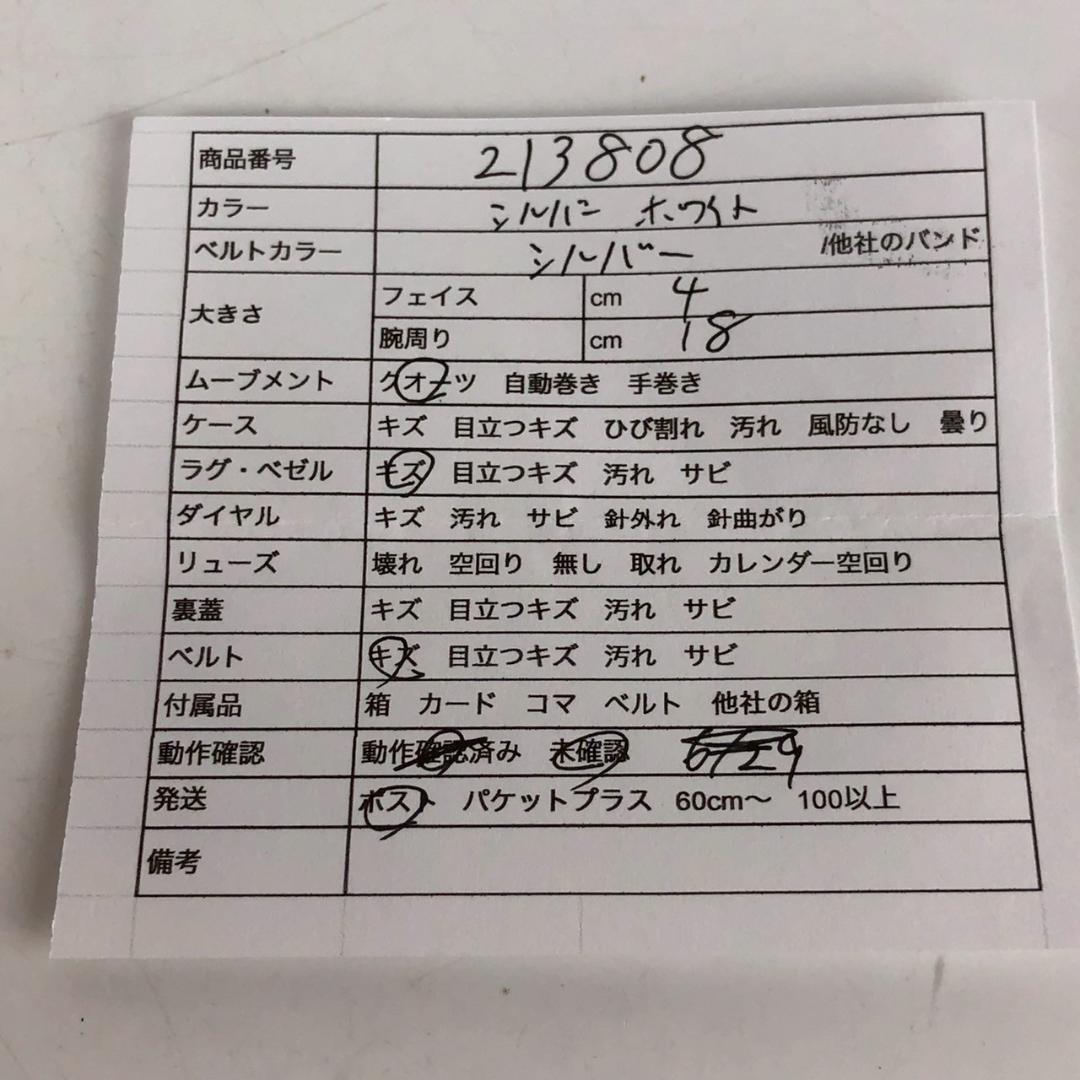 商品番号 213808
カラー シルバー ホワイト
ベルトカラー シルバー /他社のバンド
大きさ フェイス cm 4
腕周り cm 18
ムーブメント クオーツ 自動巻き 手巻き
ケース キズ 目立つキズ ひび割れ 汚れ 風防なし 曇り
ラグ・ベゼル キズ 目立つキズ 汚れ サビ
ダイヤル キズ 汚れ サビ 針外れ 針曲がり
リューズ 壊れ 空回り 無し 取れ カレンダー空回り
裏蓋 キズ 目立つキズ 汚れ サビ
ベルト キズ 目立つキズ 汚れ サビ
付属品 箱 カード コマ ベルト 他社の箱
動作確認 動作確認済み 未確認 6/29
発送 ポスト パケットプラス 60cm〜 100以上
備考